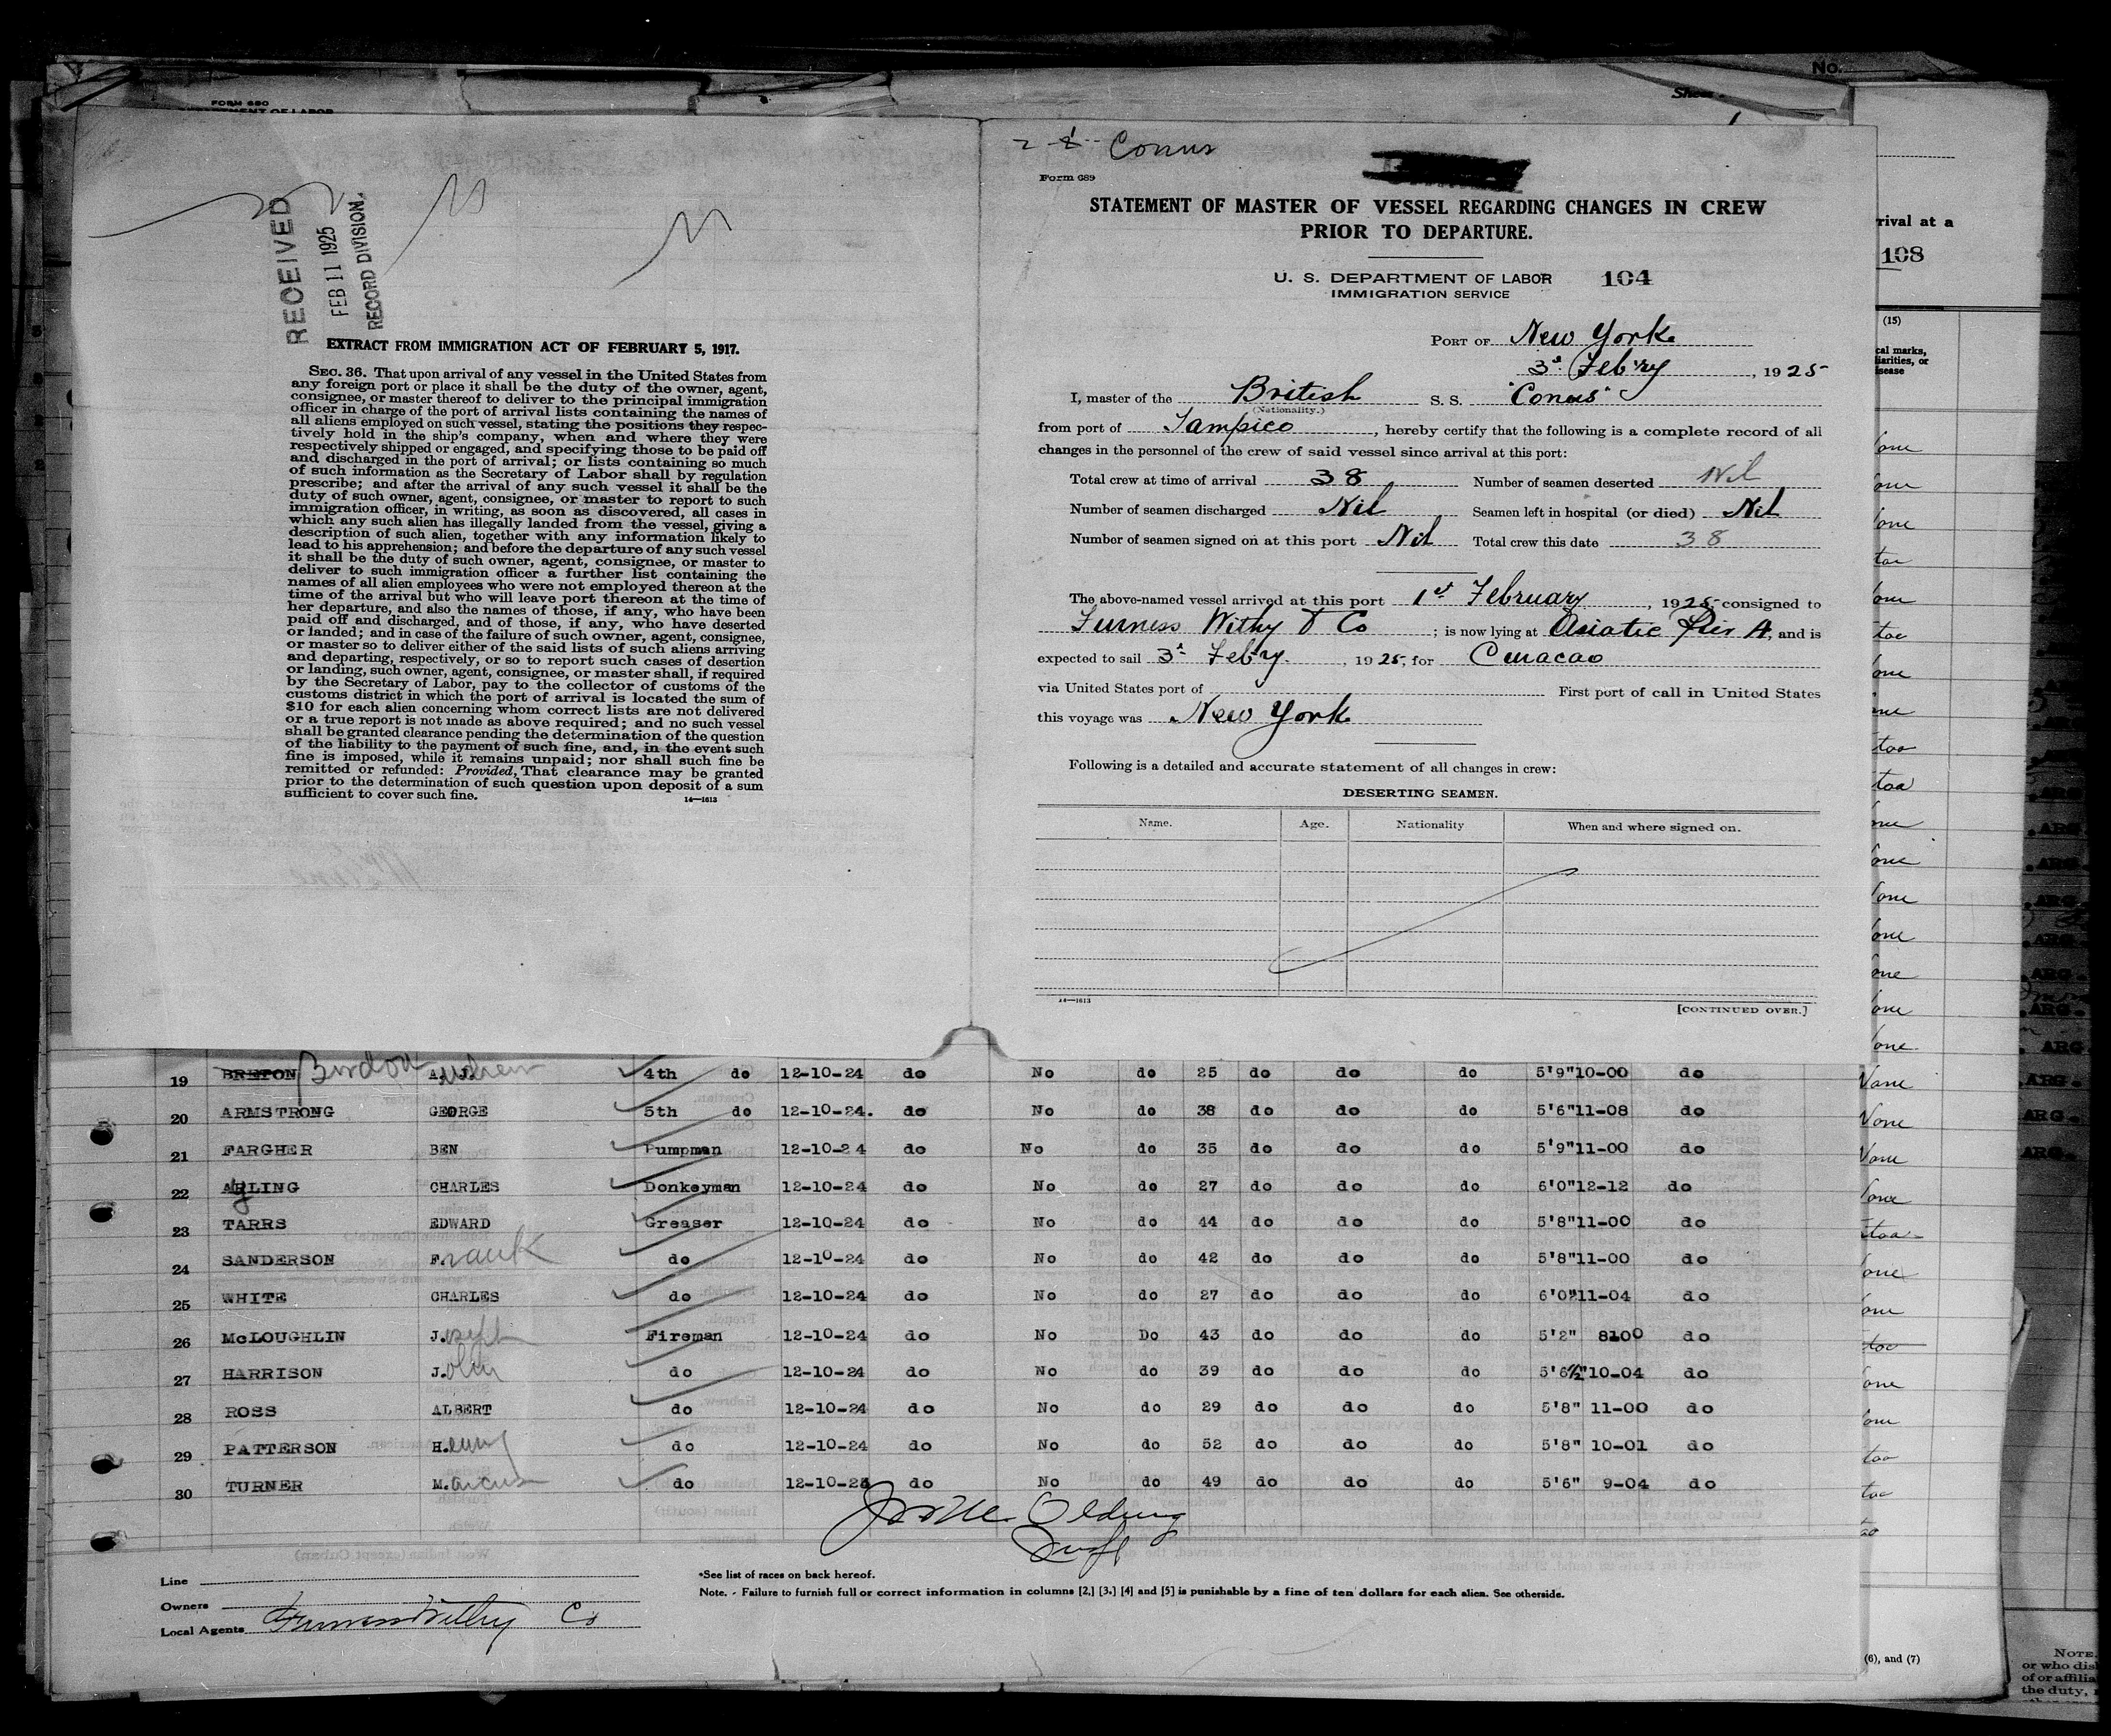 No.
FORM 680
RECEIVED
FEB 11 1925
RECORD DIVISION.
EXTRACT FROM IMMIGRATION ACT OF FEBRUARY 5, 1917.
SEC. 36. That upon arrival of any vessel in the United States from
any foreign port or place it shall be the duty of the owner, agent,
consignee, or master thereof to deliver to the principal immigration
officer in charge of the port of arrival lists containing the names of
all aliens employed on such vessel, stating the positions they respec-
tively hold in the ship's company, when and where they were
respectively shipped or engaged, and specifying those to be paid off
and discharged in the port of arrival; or lists containing so much
of such information as the Secretary of Labor shall by regulation
prescribe; and after the arrival of any such vessel it shall be the
duty of such owner, agent, consignee, or master to report to such
immigration officer, in writing, as soon as discovered, all cases in
which any such alien has illegally landed from the vessel, giving a
description of such alien, together with any information likely to
lead to his apprehension; and before the departure of any such vessel
it shall be the duty of such owner, agent, consignee, or master to
deliver to such immigration officer a further list containing the
names of all alien employees who were not employed thereon at the
time of the arrival but who will leave port thereon at the time of
her departure, and also the names of those, if any, who have been
paid off and discharged, and of those, if any, who have deserted
or landed; and in case of the failure of such owner, agent, consignee,
or master so to deliver either of the said lists of such aliens arriving
and departing, respectively, or so to report such cases of desertion
or landing, such owner, agent, consignee, or master shall, if required
by the Secretary of Labor, pay to the collector of customs of the
customs district in which the port of arrival is located the sum of
$10 for each alien concerning whom correct lists are not delivered
or a true report is not made as above required; and no such vessel
shall be granted clearance pending the determination of the question
of the liability to the payment of such fine, and, in the event such
fine is imposed, while it remains unpaid; nor shall such fine be
remitted or refunded: Provided, That clearance may be granted
prior to the determination of such question upon deposit of a sum
sufficient to cover such fine.
14—1613
Conus
Form 689
STATEMENT OF MASTER OF VESSEL REGARDING CHANGES IN CREW
PRIOR TO DEPARTURE.
U. S. DEPARTMENT OF LABOR 104
IMMIGRATION SERVICE
PORT OF New York
3d Feb'ry, 1925
I, master of the British S. S. "Conus"
(Nationality.)
from port of Tampico, hereby certify that the following is a complete record of all
changes in the personnel of the crew of said vessel since arrival at this port:
Total crew at time of arrival 38 Number of seamen deserted Nil
Number of seamen discharged Nil Seamen left in hospital (or died) Nil
Number of seamen signed on at this port Nil Total crew this date 38
The above-named vessel arrived at this port 1st February, 1925 consigned to
Furness Withy & Co; is now lying at Asiatic Pier A, and is
expected to sail 3d Feb'ry., 1925, for Curacao
via United States port of First port of call in United States
this voyage was New York
Following is a detailed and accurate statement of all changes in crew:
DESERTING SEAMEN.
Name. Age. Nationality When and where signed on.
14—1613
[CONTINUED OVER.]
rival at a
108
(15)
19 BRETON A. J. 4th do 12-10-24 do No do 25 do do do 5'9" 10-00 do
20 ARMSTRONG GEORGE 5th do 12-10-24. do No do 38 do do do 5'6" 11-08 do
21 FARGHER BEN Pumpman 12-10-24 do No do 35 do do do 5'9" 11-00 do
22 AyLING CHARLES Donkeyman 12-10-24 do No do 27 do do do 6'0" 12-12 do
23 TARRS EDWARD Greaser 12-10-24 do No do 44 do do do 5'8" 11-00 do
24 SANDERSON Frank do 12-10-24 do No do 42 do do do 5'8" 11-00 do
25 WHITE CHARLES do 12-10-24 do No do 27 do do do 6'0" 11-04 do
26 McLOUGHLIN J.oseph Fireman 12-10-24 do No Do 43 do do do 5'2" 8100 do
27 HARRISON J.ohn do 12-10-24 do No do 39 do do do 5'6½" 10-04 do
28 ROSS ALBERT do 12-10-24 do No do 29 do do do 5'8" 11-00 do
29 PATTERSON H.enry do 12-10-24 do No do 52 do do do 5'8" 10-01 do
30 TURNER M.arcus do 12-10-24 do No do 49 do do do 5'6" 9-04 do
Line
Owners
Local Agents Furness Withy Co
*See list of races on back hereof.
Note. - Failure to furnish full or correct information in columns [2,] [3.] [4] and [5] is punishable by a fine of ten dollars for each alien. See otherside.
(6), and (7)
NOTE.
or who dis
of or affilia
the duty,